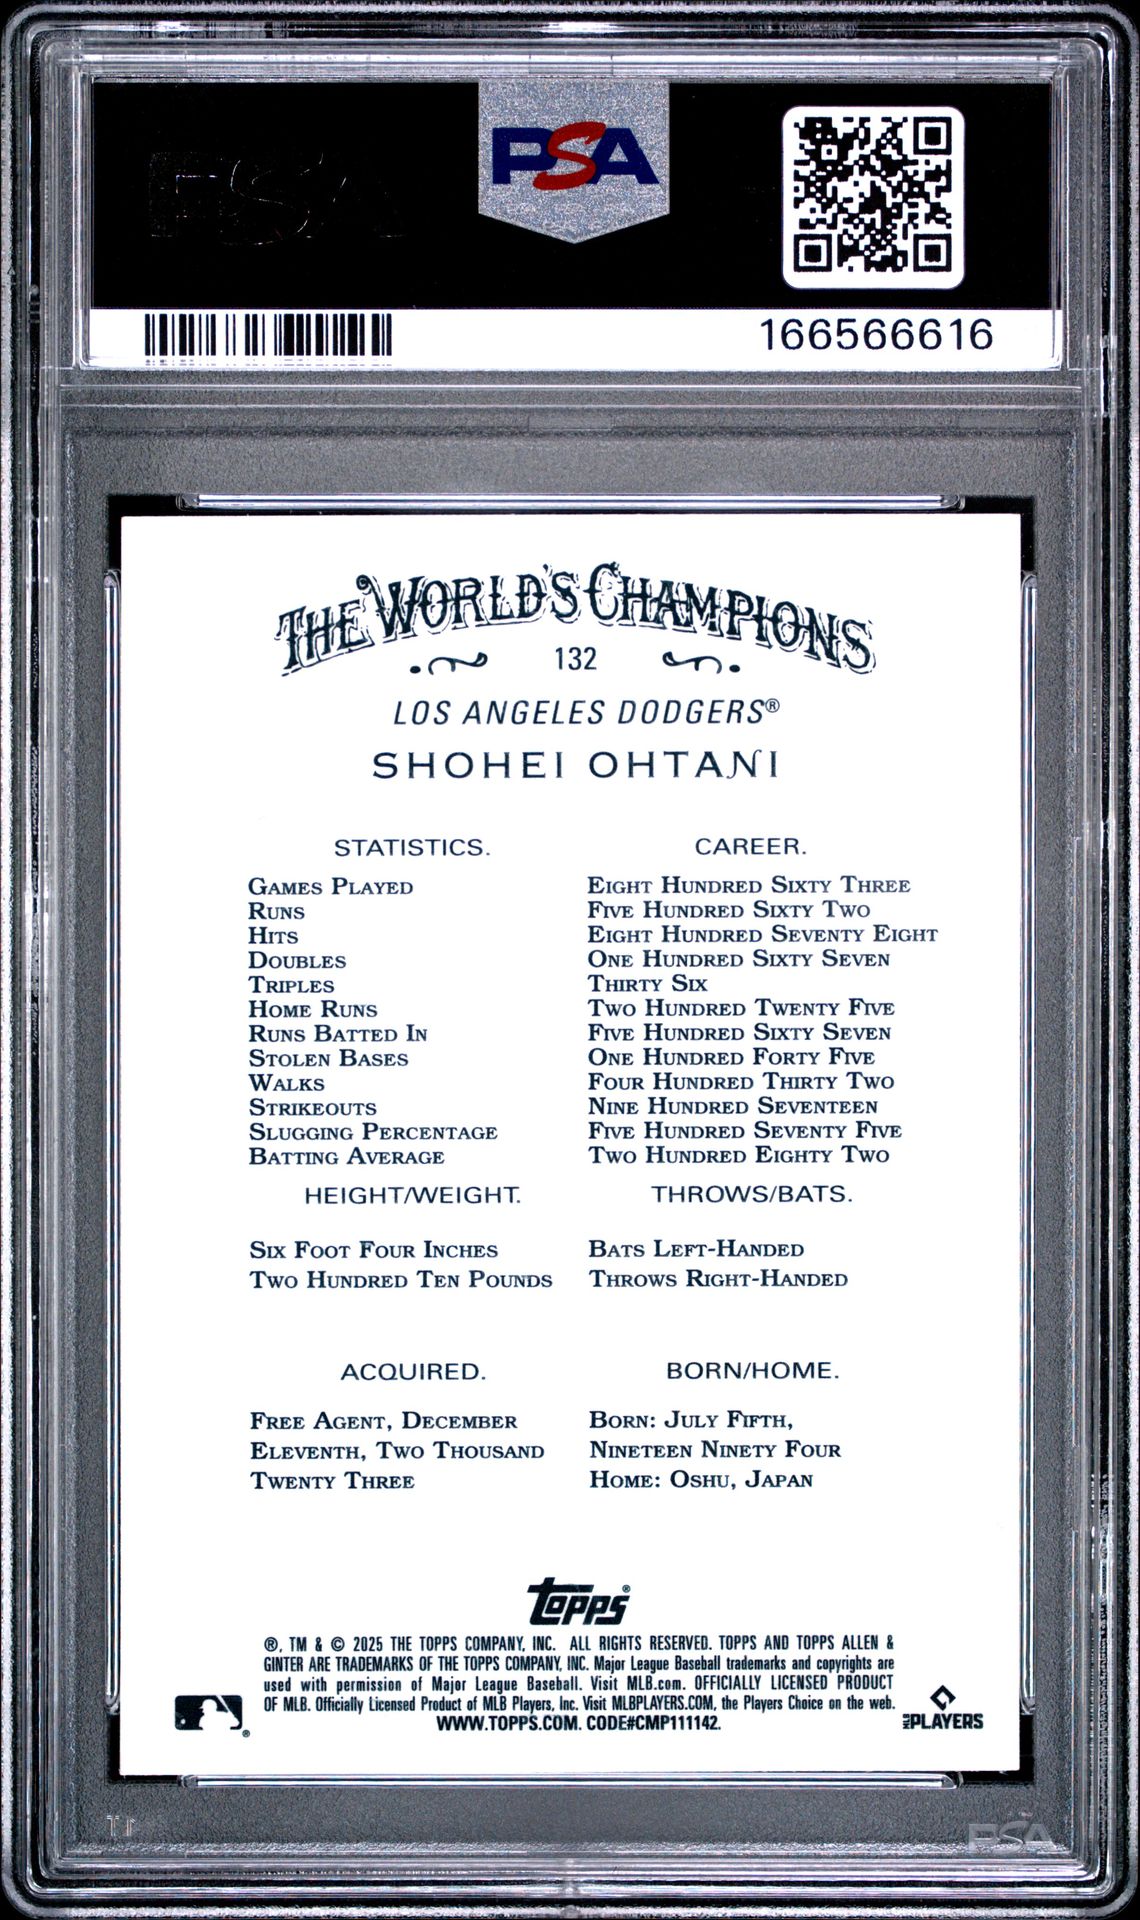 PSA
PSA
166566616
THE WORLD'S CHAMPIONS
132
LOS ANGELES DODGERS®
SHOHEI OHTANI
STATISTICS. CAREER.
GAMES PLAYED EIGHT HUNDRED SIXTY THREE
RUNS FIVE HUNDRED SIXTY TWO
HITS EIGHT HUNDRED SEVENTY EIGHT
DOUBLES ONE HUNDRED SIXTY SEVEN
TRIPLES THIRTY SIX
HOME RUNS TWO HUNDRED TWENTY FIVE
RUNS BATTED IN FIVE HUNDRED SIXTY SEVEN
STOLEN BASES ONE HUNDRED FORTY FIVE
WALKS FOUR HUNDRED THIRTY TWO
STRIKEOUTS NINE HUNDRED SEVENTEEN
SLUGGING PERCENTAGE FIVE HUNDRED SEVENTY FIVE
BATTING AVERAGE TWO HUNDRED EIGHTY TWO
HEIGHT/WEIGHT. THROWS/BATS.
SIX FOOT FOUR INCHES BATS LEFT-HANDED
TWO HUNDRED TEN POUNDS THROWS RIGHT-HANDED
ACQUIRED. BORN/HOME.
FREE AGENT, DECEMBER BORN: JULY FIFTH,
ELEVENTH, TWO THOUSAND NINETEEN NINETY FOUR
TWENTY THREE HOME: OSHU, JAPAN
Topps®
®, TM & © 2025 THE TOPPS COMPANY, INC. ALL RIGHTS RESERVED. TOPPS AND TOPPS ALLEN &
GINTER ARE TRADEMARKS OF THE TOPPS COMPANY, INC. Major League Baseball trademarks and copyrights are
used with permission of Major League Baseball. Visit MLB.com. OFFICIALLY LICENSED PRODUCT
OF MLB. Officially Licensed Product of MLB Players, Inc. Visit MLBPLAYERS.COM, the Players Choice on the web.
WWW.TOPPS.COM. CODE#CMP111142.
®
MLB PLAYERS
PSA